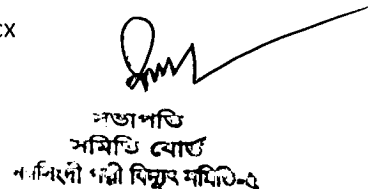 cx
সভাপতি
সমিতি বোর্ড
নরসিংদী পল্লী বিদ্যুৎ সমিতি-১